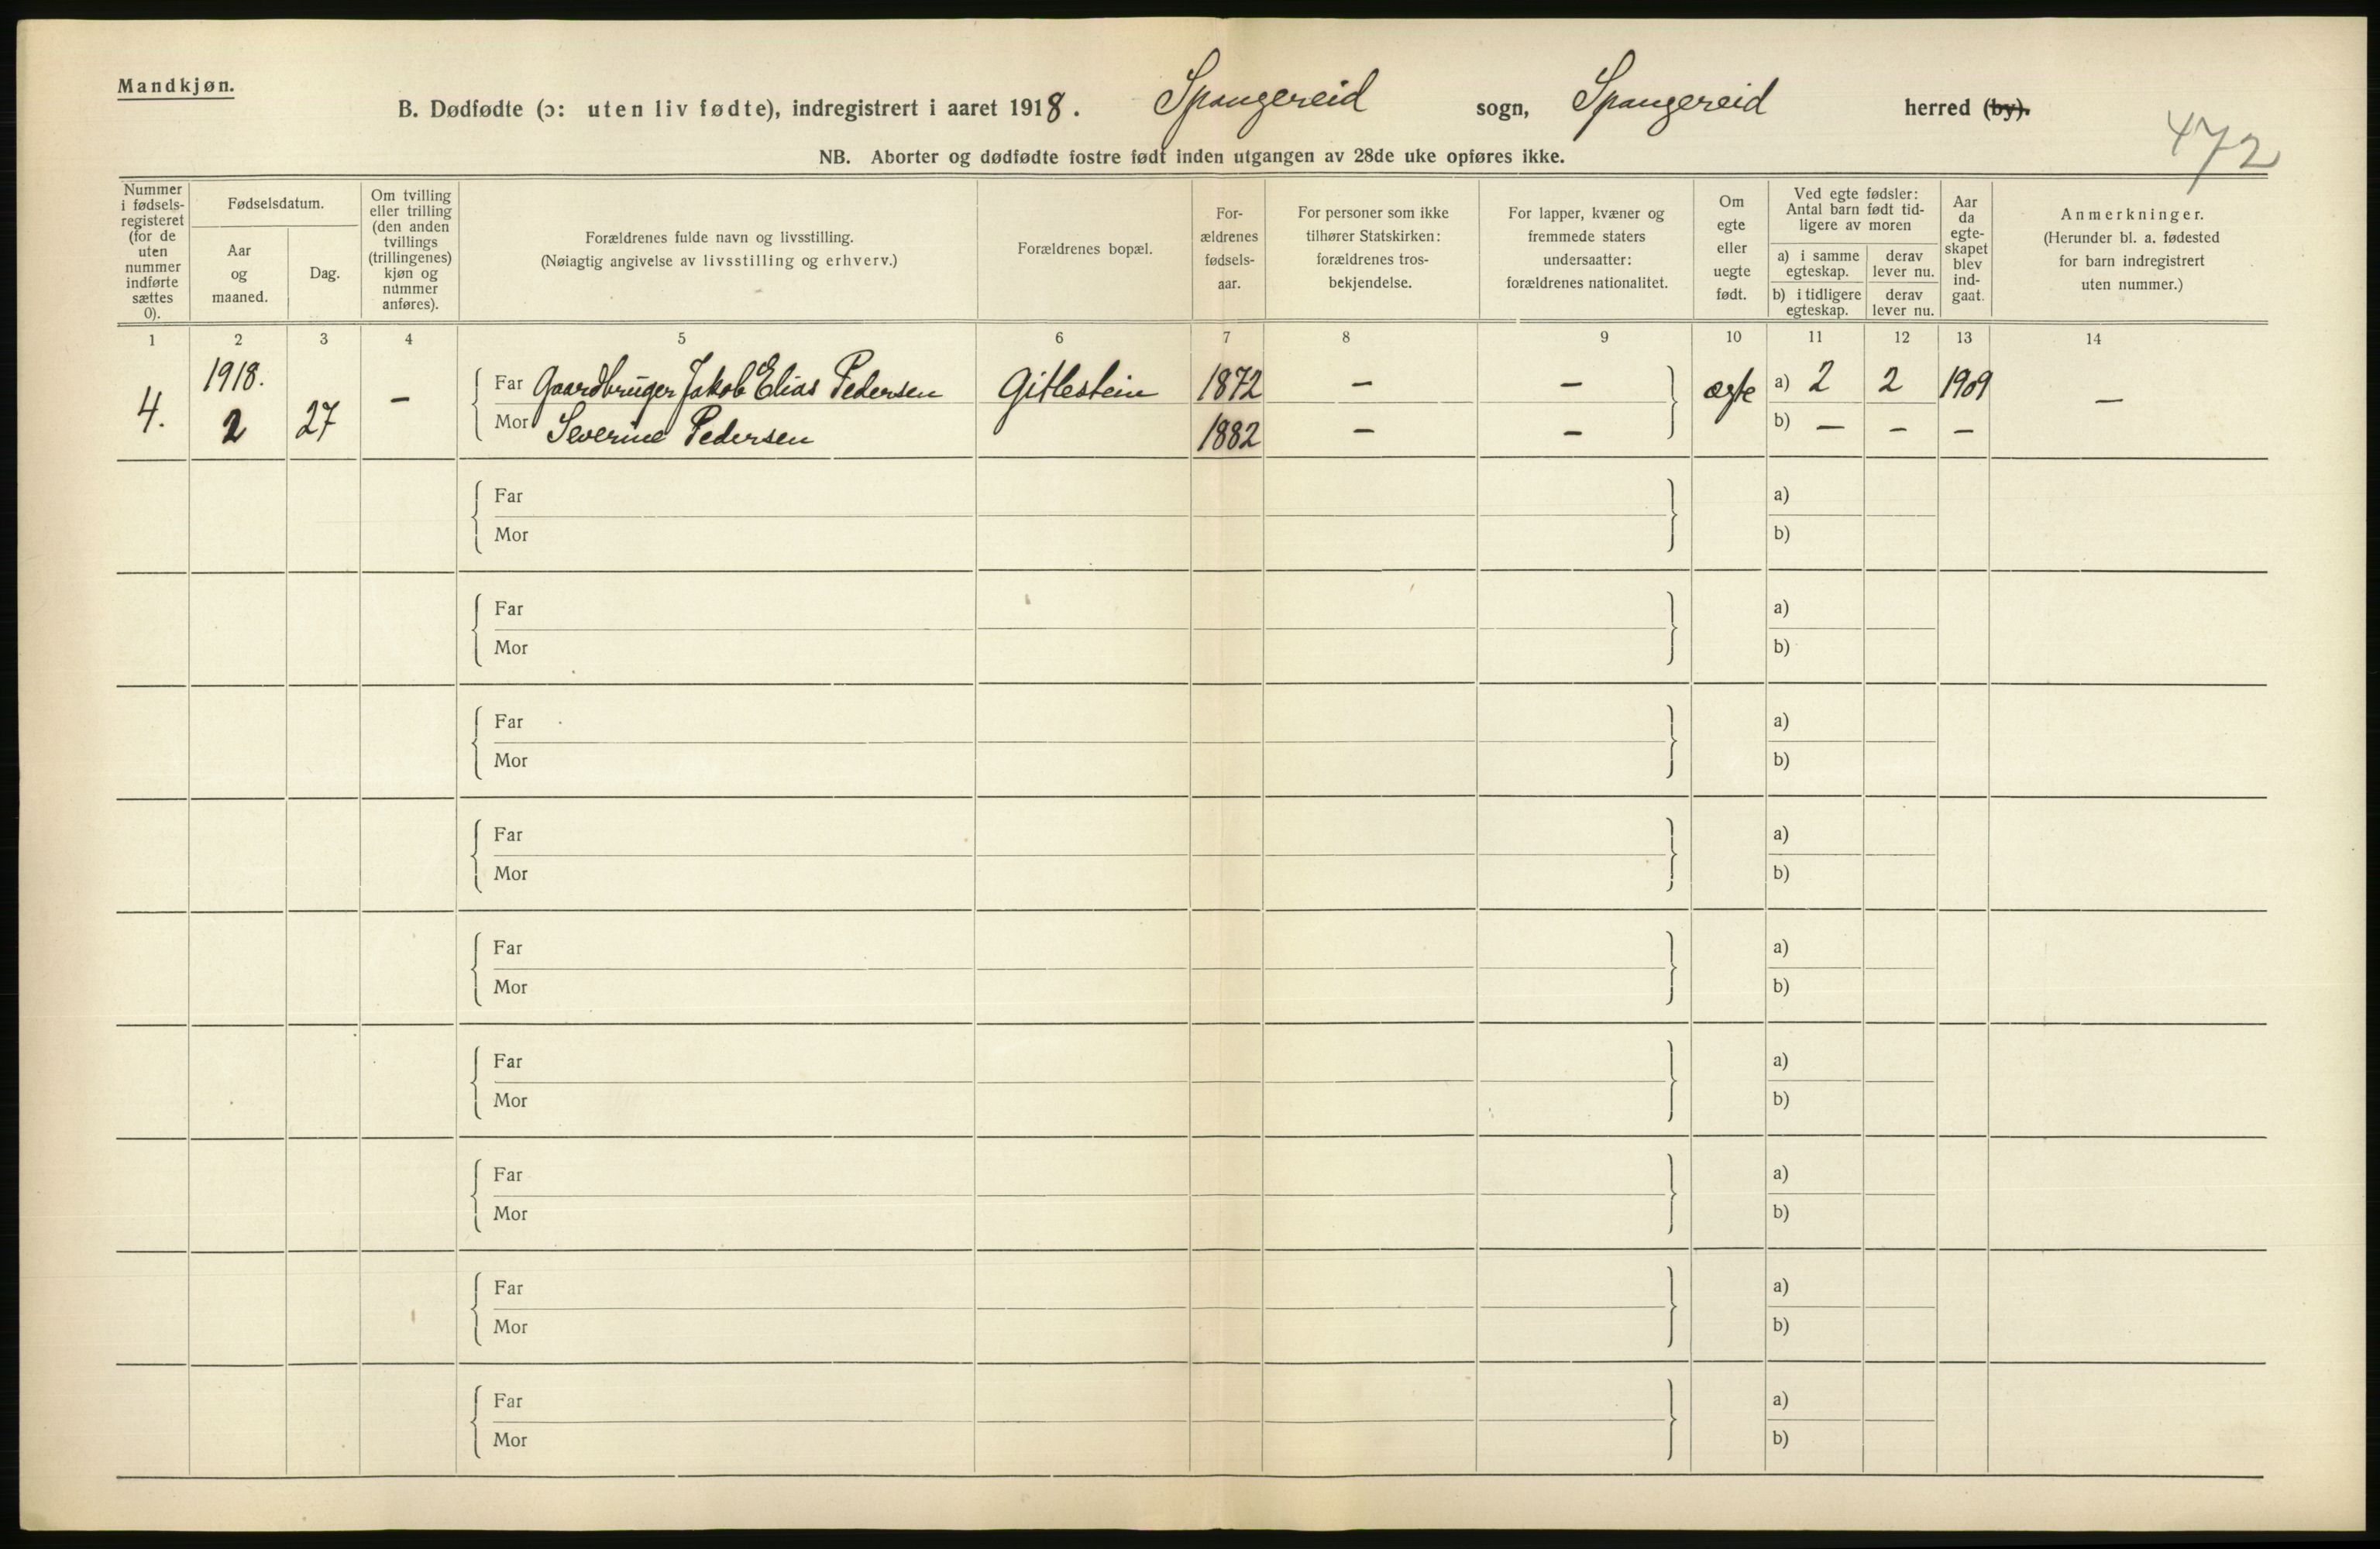 Mandkjøn.
B. Dødfødte (ɔ: uten liv fødte), indregistrert i aaret 1918. Spangereid sogn, Spangereid herred (by).
472
NB. Aborter og dødfødte fostre født inden utgangen av 28de uke opføres ikke.
Nummer
i fødsels-
registeret
(for de
uten
nummer
indførte
sættes
0).
Fødselsdatum.
Aar
og
maaned.
Dag.
Om tvilling
eller trilling
(den anden
tvillings
(trillingenes)
kjøn og
nummer
anføres).
Forældrenes fulde navn og livsstilling.
(Nøiagtig angivelse av livsstilling og erhverv.)
Forældrenes bopæl.
For-
ældrenes
fødsels-
aar.
For personer som ikke
tilhører Statskirken:
forældrenes tros-
bekjendelse.
For lapper, kvæner og
fremmede staters
undersaatter:
forældrenes nationalitet.
Om
egte
eller
uegte
født.
Ved egte fødsler:
Antal barn født tid-
ligere av moren
a) i samme
egteskap.
derav
lever nu.
b) i tidligere
egteskap.
derav
lever nu.
Aar
da
egte-
skapet
blev
ind-
gaat.
Anmerkninger.
(Herunder bl. a. fødested
for barn indregistrert
uten nummer.)
1 2 3 4 5 6 7 8 9 10 11 12 13 14
1918.
4. 2 27 –
Far Gaardbruger Jakob Elias Pedersen Gitlestein 1872 – – ægte a) 2 2 1909 –
Mor Severine Pedersen 1882 – – b) – – –
Far a)
Mor b)
Far a)
Mor b)
Far a)
Mor b)
Far a)
Mor b)
Far a)
Mor b)
Far a)
Mor b)
Far a)
Mor b)
Far a)
Mor b)
Far a)
Mor b)